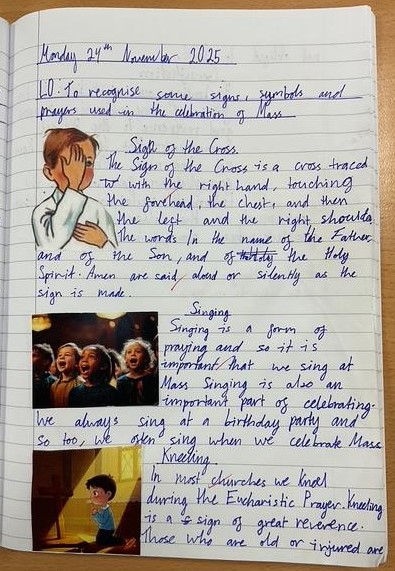 Monday 24th November 2025
LO: To recognise some signs, symbols and
prayers used in the celebration of Mass
Sign of the Cross.
The Sign of the Cross is a cross traced
with the right hand, touching
the forehead, the chest, and then
the left and the right shoulder
The words In the name of the Father,
and of the Son, and of the Holy
Spirit. Amen are said, aloud or silently as the
sign is made.
Singing
Singing is a form of
praying and so it is
important that we sing at
Mass Singing is also an
important part of celebrating.
We always sing at a birthday party and
so too, we often sing when we celebrate Mass
Kneeling
In most churches we knell
during the Eucharistic Prayer. Kneeling
is a sign of great reverence.
Those who are old or injured are